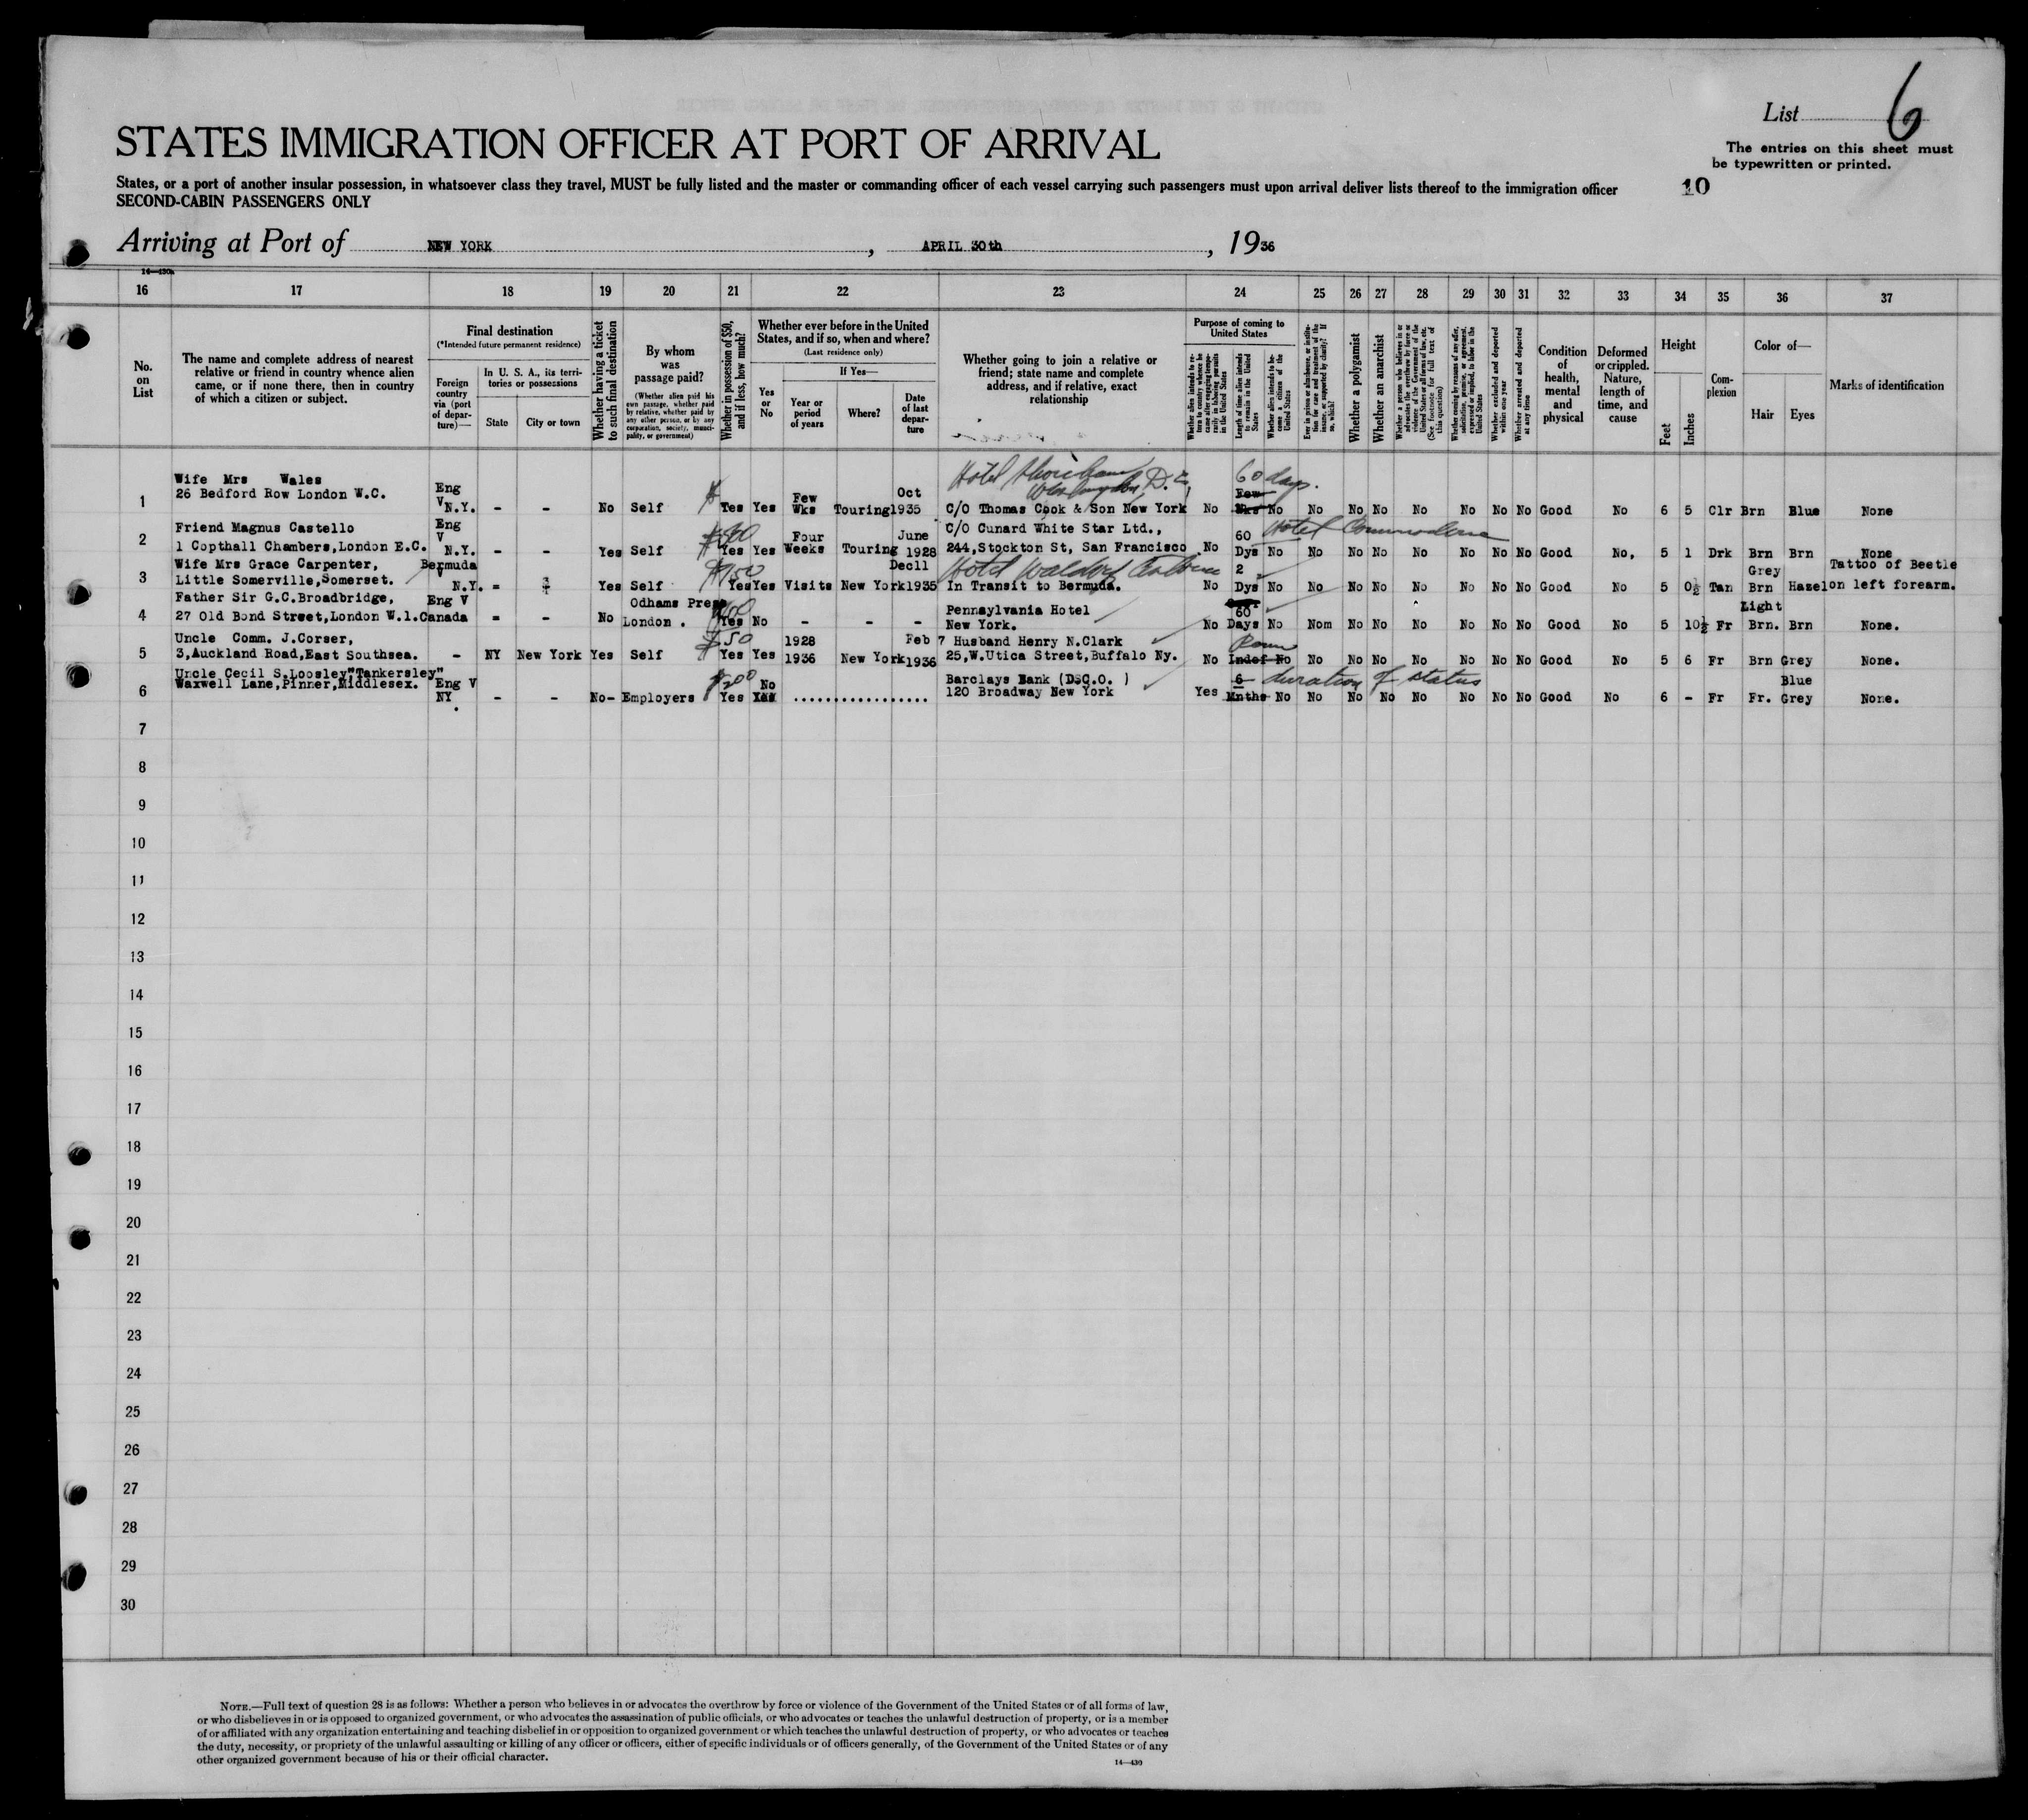 List 6
The entries on this sheet must
be typewritten or printed.
10
STATES IMMIGRATION OFFICER AT PORT OF ARRIVAL
States, or a port of another insular possession, in whatsoever class they travel, MUST be fully listed and the master or commanding officer of each vessel carrying such passengers must upon arrival deliver lists thereof to the immigration officer
SECOND-CABIN PASSENGERS ONLY
Arriving at Port of NEW YORK, APRIL 30th, 1936
14—430a
16 17 18 19 20 21 22 23 24 25 26 27 28 29 30 31 32 33 34 35 36 37
No.
on
List
The name and complete address of nearest
relative or friend in country whence alien
came, or if none there, then in country
of which a citizen or subject.
Final destination
(*Intended future permanent residence)
Foreign
country
via (port
of depar-
ture)—
In U. S. A., its terri-
tories or possessions
State
City or town
Whether having a ticket
to such final destination
By whom
was
passage paid?
(Whether alien paid his
own passage, whether paid
by relative, whether paid by
any other person, or by any
corporation, society, munici-
pality, or government)
Whether in possession of $50,
and if less, how much?
Whether ever before in the United
States, and if so, when and where?
(Last residence only)
Yes
or
No
If Yes—
Year or
period
of years
Where?
Date
of last
depar-
ture
Whether going to join a relative or
friend; state name and complete
address, and if relative, exact
relationship
Purpose of coming to
United States
Whether alien intends to re-
turn to country whence he
came after engaging tempo-
rarily in laboring pursuits
in the United States
Length of time alien intends
to remain in the United
States
Whether alien intends to be-
come a citizen of the
United States
Ever in prison or almshouse, or institu-
tion for care and treatment of the
insane, or supported by charity? If
so, which?
Whether a polygamist
Whether an anarchist
Whether a person who believes in or
advocates the overthrow by force or
violence of the Government of the
United States or all forms of law, etc.
(See footnote for full text of
this question)
Whether coming by reason of any offer,
solicitation, promise, or agreement,
expressed or implied, to labor in the
United States
Whether excluded and deported
within one year
Whether arrested and deported
at any time
Condition
of
health,
mental
and
physical
Deformed
or crippled.
Nature,
length of
time, and
cause
Height
Feet
Inches
Com-
plexion
Color of—
Hair
Eyes
Marks of identification
Wife Mrs Wales
Hotel Washington, D.C. 60 days.
26 Bedford Row London W.C. Eng Few Oct Few
1 V N.Y. - - No Self $ Yes Yes Wks Touring 1935 C/O Thomas Cook & Son New York No Wks No No No No No No No No Good No 6 5 Clr Brn Blue None
Friend Magnus Castello Eng V Four June C/O Cunard White Star Ltd., 60 Hotel Commodore
2 1 Copthall Chambers, London E.C. N.Y. - - Yes Self Yes Yes Weeks Touring 1928 244, Stockton St, San Francisco No Dys No No No No No No No No Good No, 5 1 Drk Brn Brn None
Wife Mrs Grace Carpenter, Bermuda V $150 Dec11 Hotel Waldorf Astoria 2 Grey Tattoo of Beetle
3 Little Somerville, Somerset. N.Y. - Yes Self Yes Yes Visits New York 1935 In Transit to Bermuda. No Dys No No No No No No No No Good No 5 0½ Tan Brn Hazel on left forearm.
Father Sir G.C.Broadbridge, Eng V Odhams Press Pennsylvania Hotel 60 Light
4 27 Old Bond Street, London W.1. Canada - - No London . Yes No - - - New York. No Days No Nom No No No No No No Good No 5 10½ Fr Brn. Brn None.
Uncle Comm. J.Corser, $50 1928 Feb 7 Husband Henry N.Clark
5 3, Auckland Road, East Southsea. - NY New York Yes Self Yes Yes 1936 New York 1936 25, W. Utica Street, Buffalo Ny. No Indef No No No No No No No No Good No 5 6 Fr Brn Grey None.
Uncle Cecil S.Loosley "Tankersley" $200 No Barclays Bank (D.C.O. ) 6 duration of status Blue
6 Waxwell Lane, Pinner, Middlesex. Eng V NY. - - No- Employers Yes Yes ................. 120 Broadway New York Yes Mnths No No No No No No No No Good No 6 - Fr Fr. Grey None.
7
8
9
10
11
12
13
14
15
16
17
18
19
20
21
22
23
24
25
26
27
28
29
30
NOTE.—Full text of question 28 is as follows: Whether a person who believes in or advocates the overthrow by force or violence of the Government of the United States or of all forms of law,
or who disbelieves in or is opposed to organized government, or who advocates the assassination of public officials, or who advocates or teaches the unlawful destruction of property, or is a member
of or affiliated with any organization entertaining and teaching disbelief in or opposition to organized government or which teaches the unlawful destruction of property, or who advocates or teaches
the duty, necessity, or propriety of the unlawful assaulting or killing of any officer or officers, either of specific individuals or of officers generally, of the Government of the United States or of any
other organized government because of his or their official character.
14—430